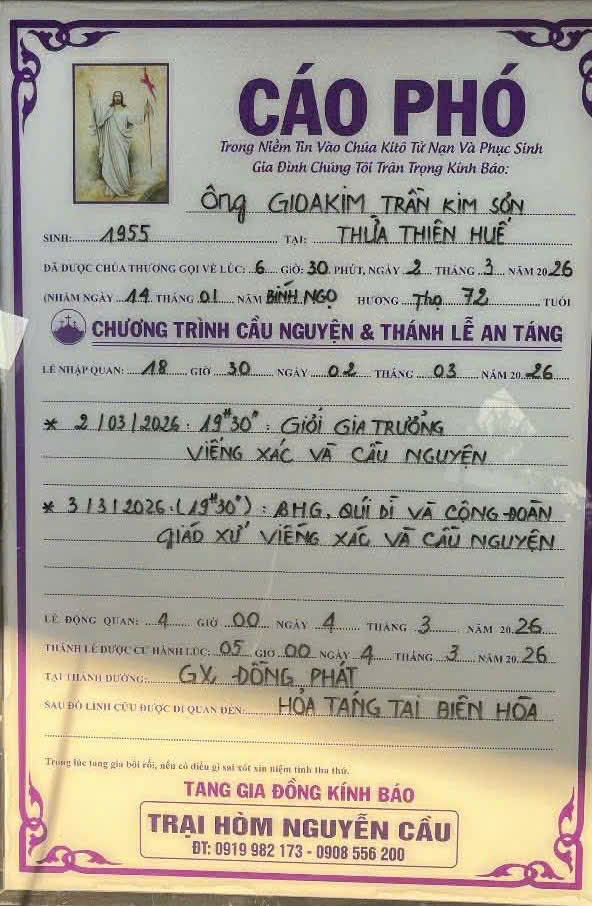 CÁO PHÓ
Trong Niềm Tin Vào Chúa Kitô Tử Nạn Và Phục Sinh
Gia Đình Chúng Tôi Trân Trọng Kính Báo:
Ông GIOAKIM TRẦN KIM SƠN
SINH: 1955 TẠI: THỪA THIÊN HUẾ
ĐÃ ĐƯỢC CHÚA THƯƠNG GỌI VỀ LÚC: 6 GIỜ: 30 PHÚT, NGÀY 2 THÁNG 3 NĂM 2026
(NHẰM NGÀY 14 THÁNG 01 NĂM BÍNH NGỌ HƯƠNG Thọ 72 TUỔI
CHƯƠNG TRÌNH CẦU NGUYỆN & THÁNH LỄ AN TÁNG
LỄ NHẬP QUAN: 18 GIỜ 30 NGÀY 02 THÁNG 03 NĂM 20.26
* 2/03/2026: 19H30': GIỚI GIA TRƯỞNG
VIẾNG XÁC VÀ CẦU NGUYỆN
* 3/3/2026.(19H30'): BHG, QUÍ DÌ VÀ CỘNG ĐOÀN
GIÁO XỨ VIẾNG XÁC VÀ CẦU NGUYỆN
LỄ ĐỘNG QUAN: 4 GIỜ 00 NGÀY 4 THÁNG 3 NĂM 20.26
THÁNH LỄ ĐƯỢC CỬ HÀNH LÚC: 05 GIỜ 00 NGÀY 4 THÁNG 3 NĂM 20.26
TẠI THÁNH ĐƯỜNG: GX, ĐỒNG PHÁT
SAU ĐÓ LINH CỮU ĐƯỢC DI QUAN ĐẾN: HỎA TÁNG TẠI BIÊN HÒA
Trong lúc tang gia bối rối, nếu có điều gì sai sót xin niệm tình tha thứ.
TANG GIA ĐỒNG KÍNH BÁO
TRẠI HÒM NGUYỄN CẦU
ĐT: 0919 982 173 - 0908 556 200